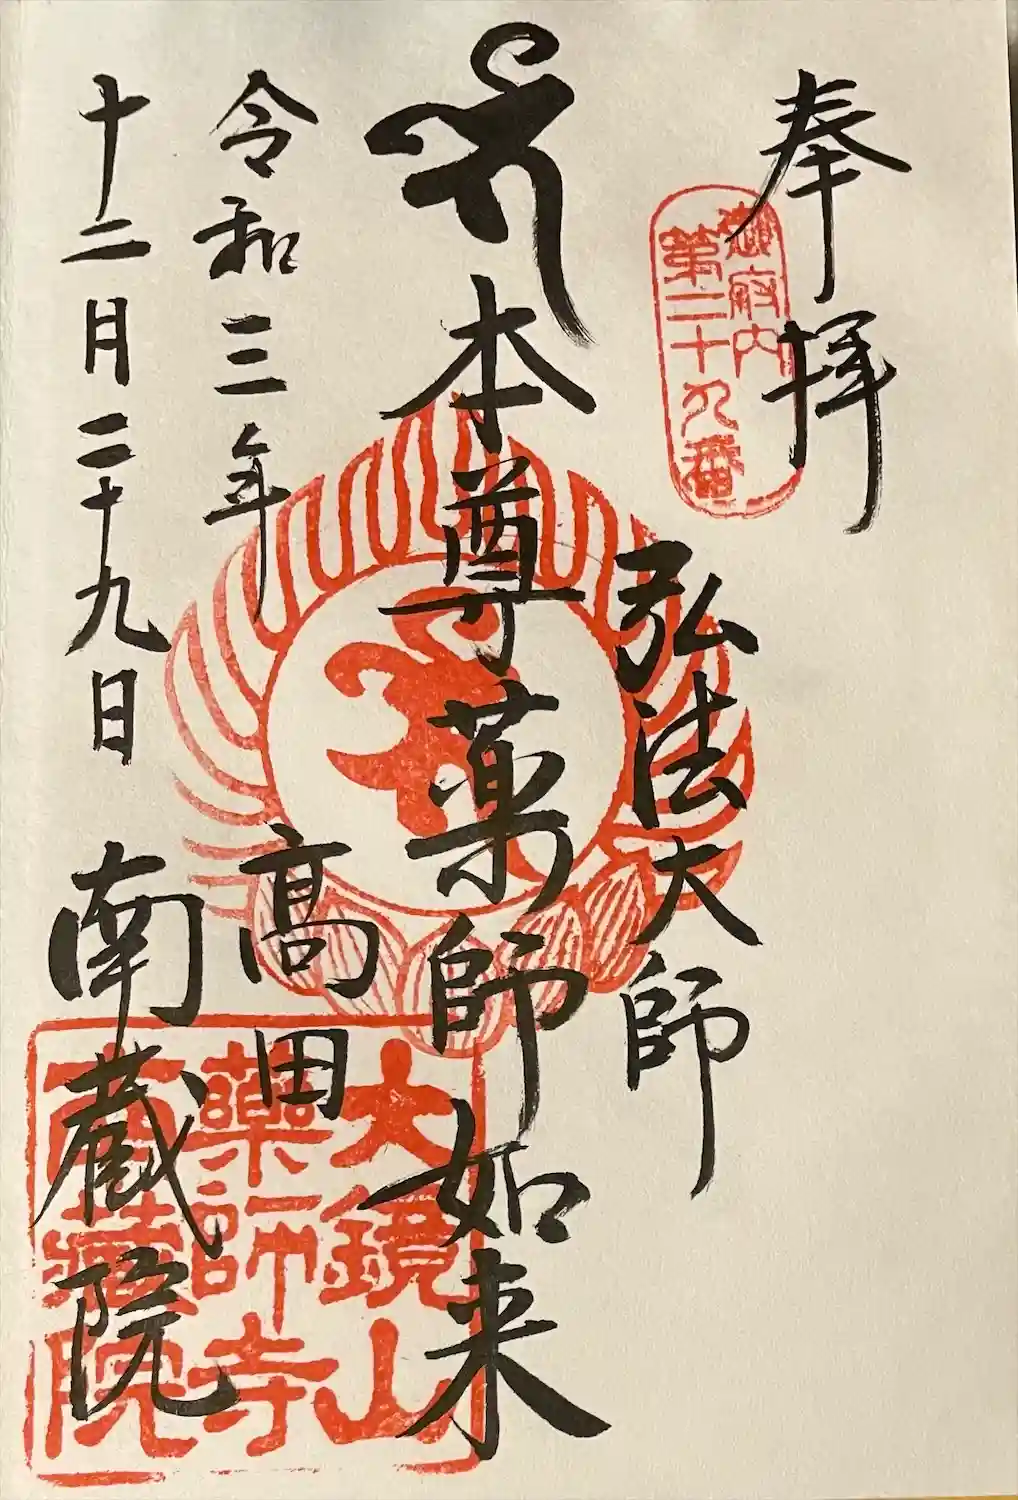 奉拝
御府内
第二十九番
弘法大師
本尊薬師如来
令和三年
十二月二十九日
高田
南蔵院
大鏡山
薬師寺
南蔵院